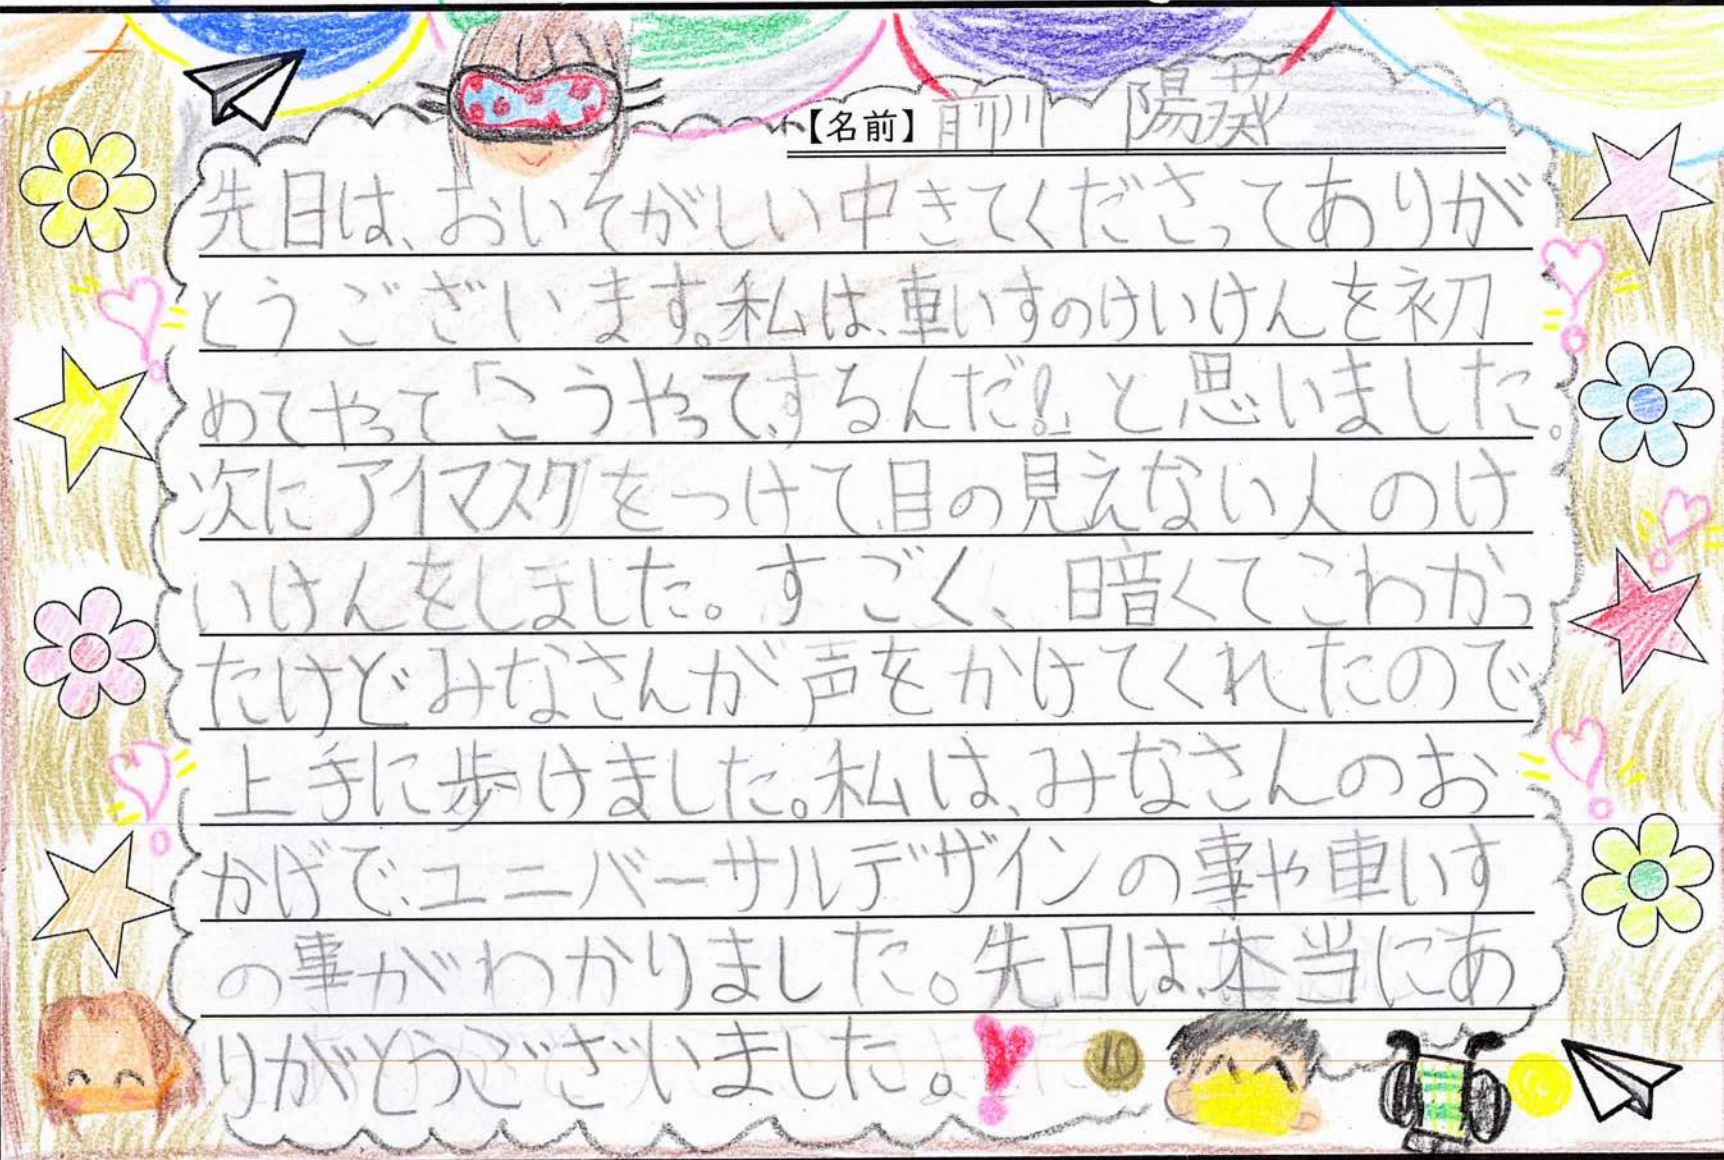 【名前】前川 陽葵
先日は、おいそがしい中きてくださってありが
とうございます。私は、車いすのけいけんを初
めてやって「こうやって、するんだ!」と思いました。
次にアイマスクをつけて、目の見えない人のけ
いけんをしました。すごく、暗くてこわかっ
たけどみなさんが声をかけてくれたので
上手に歩けました。私は、みなさんのお
かげで、ユニバーサルデザインの事や車いす
の事がわかりました。先日は、本当にあ
りがとうございました。
10